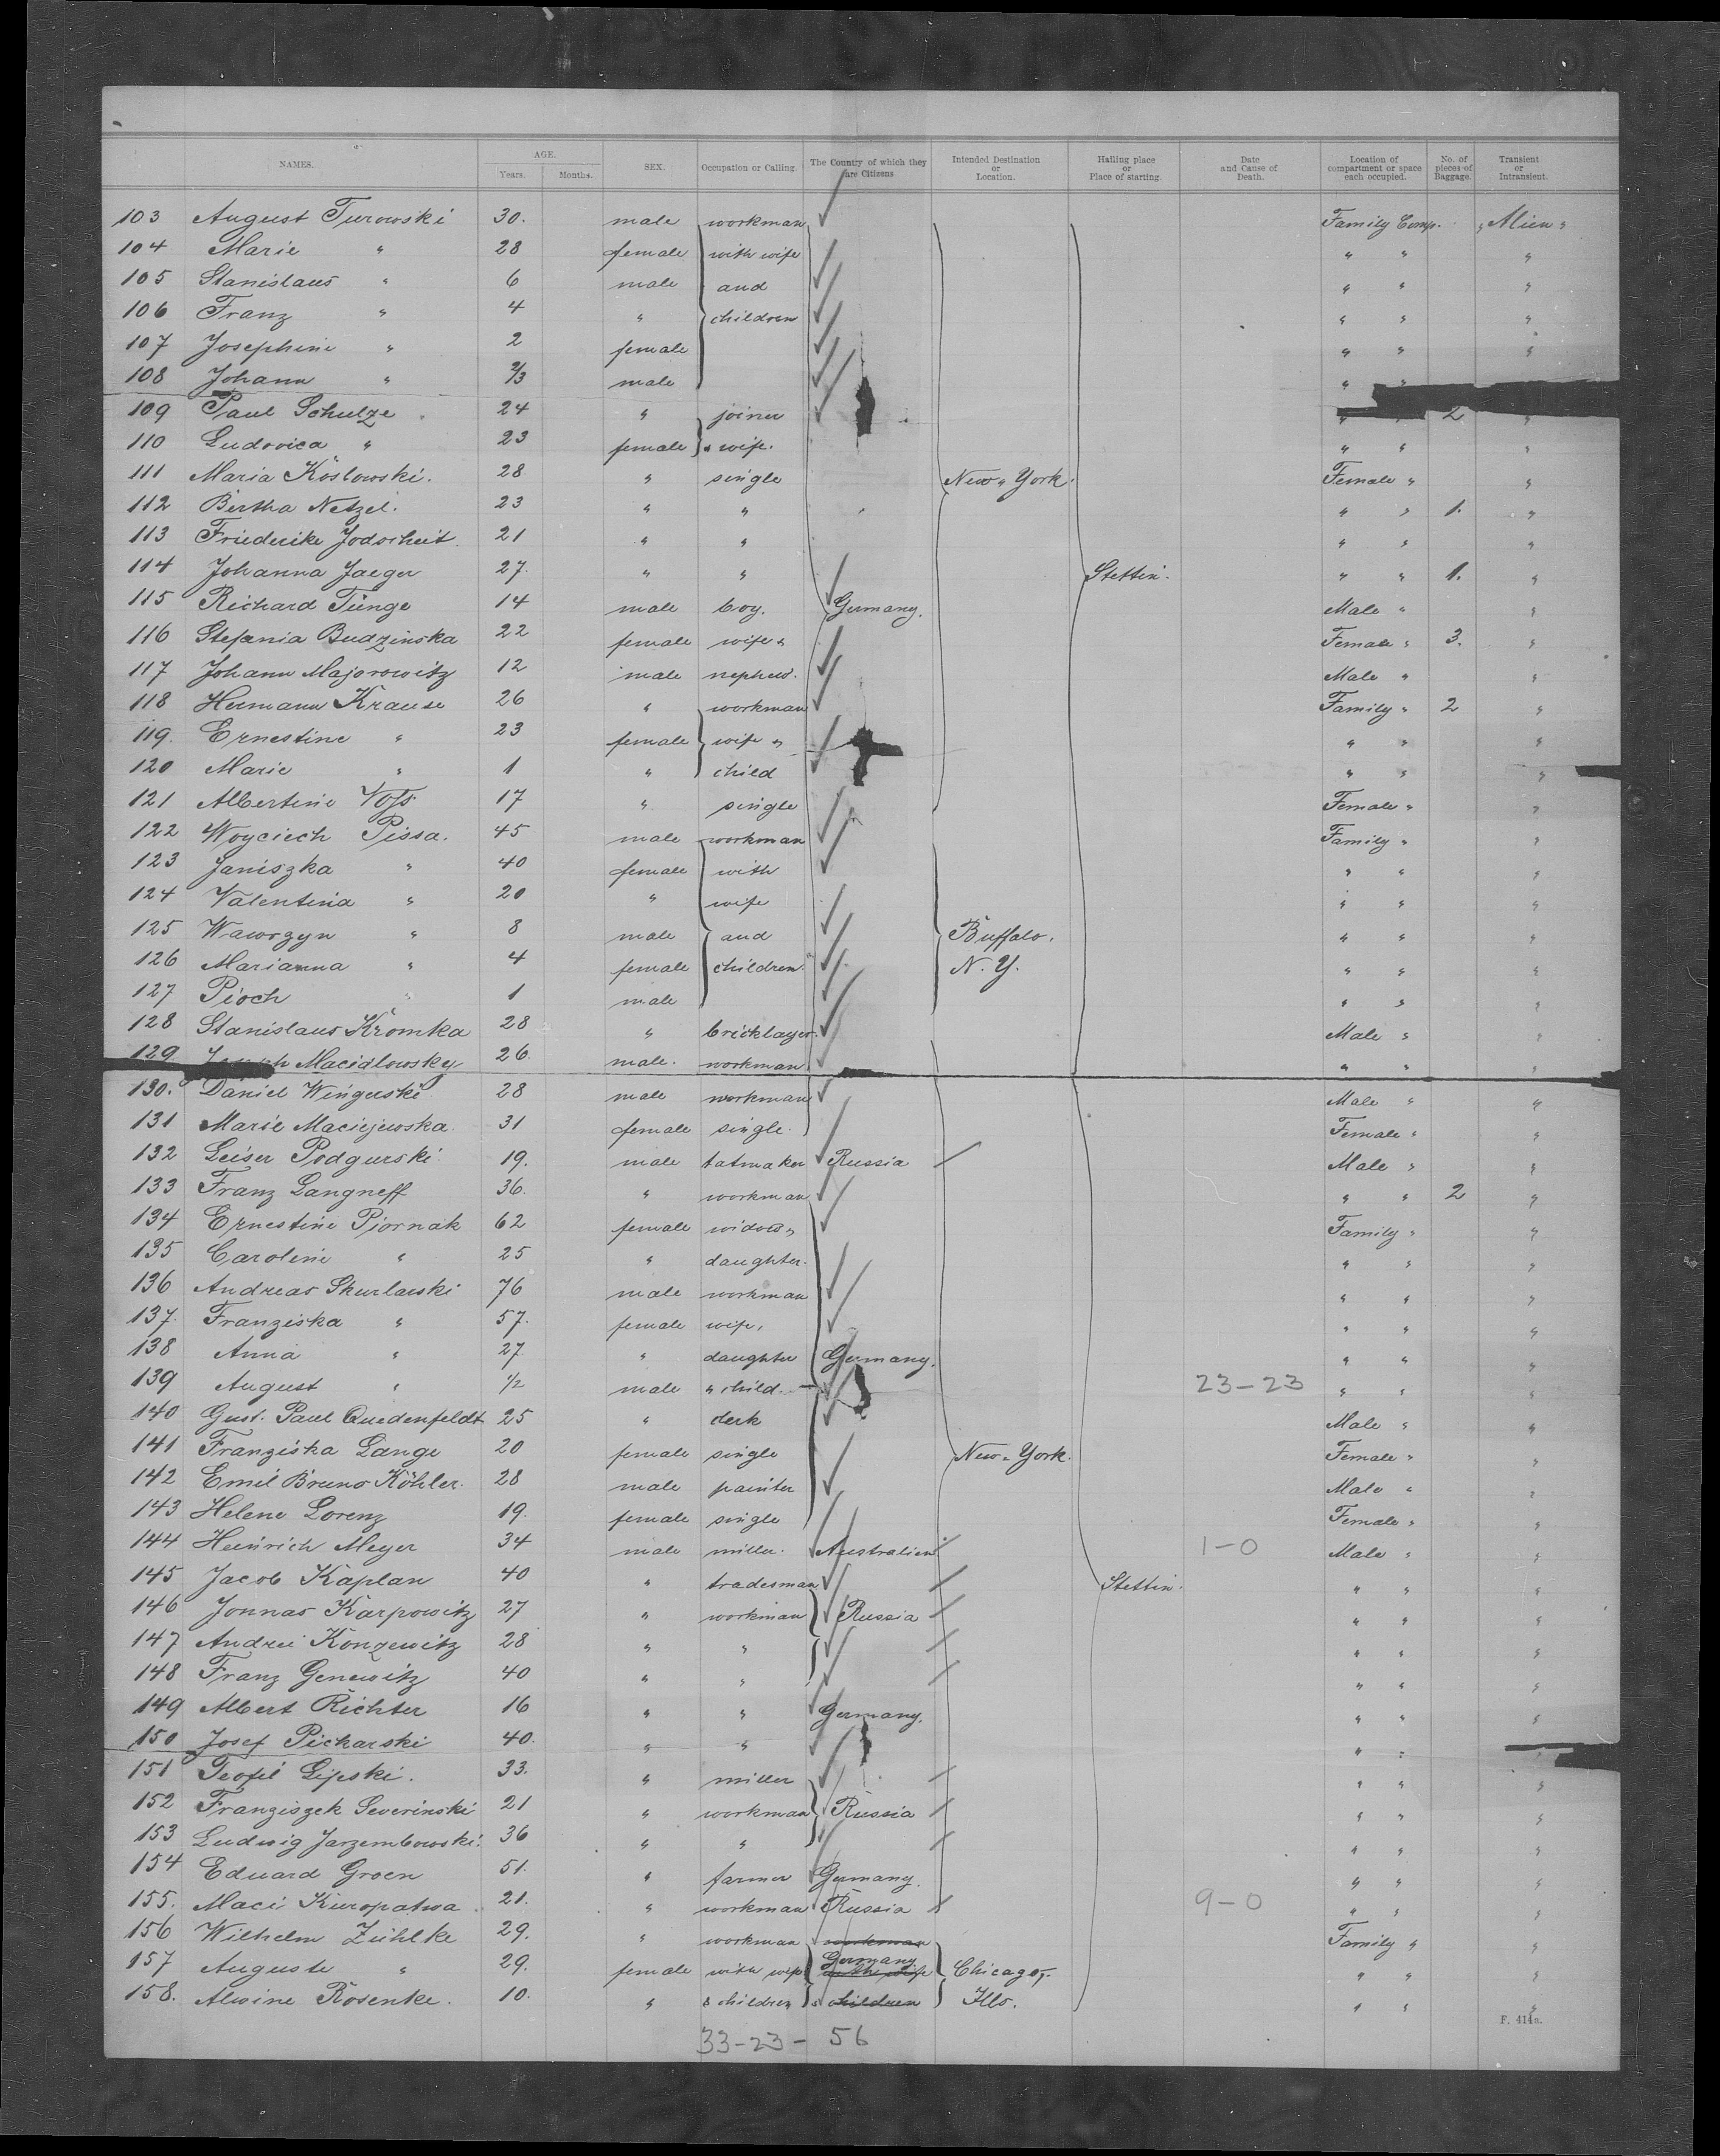 NAMES. AGE. Years. Months. SEX. Occupation or Calling. The Country of which they are Citizens Intended Destination or Location. Hailing place or Place of starting. Date and Cause of Death. Location of compartment or space each occupied. No. of pieces of Baggage. Transient or Intransient.
103 August Turowski 30. male workman Family Comp. "Alien"
104 Marie " 28 female with wife " " "
105 Stanislaus " 6 male and " " "
106 Franz " 4 " children " " "
107 Josephine " 2 female " " "
108 Johann " 2/3 male " "
109 Paul Schulze 24 " joiner " " 2 "
110 Ludovica " 23 female " wife. " " "
111 Maria Koslowski. 28 " single New-York. Female " "
112 Bertha Netzel. 23 " " " " 1. "
113 Friederike Jodscheit. 21 " " " " "
114 Johanna Jaeger 27. " " Stettin. " " 1. "
115 Richard Tünge 14 male boy. Germany. Male " "
116 Stefania Budzinska 22 female wife " Female " 3. "
117 Johann Majorowitz 12 male nephew. Male " "
118 Hermann Krause 26 " workman Family " 2 "
119. Ernestine " 23 female wife " " " "
120 Marie " 1 " child " " "
121 Albertine Voss 17 " single Female " "
122 Woyciech Pissa. 45 male workman Family " "
123 Janiszka " 40 female with " " "
124 Valentina " 20 " wife " " "
125 Wawrzyn " 8 male and Buffalo. " " "
126 Marianna " 4 female children. N.Y. " " "
127 Pioch " 1 male " " "
128 Stanislaus Kromka 28 " bricklayer. Male " "
129 Macidlowsky 26 male. workman " " "
130. Daniel Wingerski 28 male workman Male " "
131 Marie Maciejewska 31 female single. Female " "
132 Leiser Podgurski 19. male hatmaker Russia Male " "
133 Franz Langneff 36. " workman " " 2 "
134 Ernestine Piornak 62 female widow " Family " "
135 Caroline " 25 " daughter. " " "
136 Andreas Skurlarski 76 male workman " " "
137. Franziska " 57. female wife, " " "
138 Anna " 27 " daughter Germany. " " "
139 August " 1/2 male " child. 23-23 " " "
140 Gust. Paul Quedenfeldt 25 " clerk Male " "
141 Franziska Lange 20 female single New-York. Female " "
142 Emil Bruno Köhler. 28 male painter Male " "
143 Helene Lorenz 19. female single Female " "
144 Heinrich Meyer 34 male miller. Australien 1-0 Male " "
145 Jacob Kaplan 40 " tradesman Stettin. " " "
146 Jonnas Karpowitz 27 " workman Russia " " "
147 Andrei Konzewitz 28 " " " " "
148 Franz Genewitz 40 " " " " "
149 Albert Richter 16 " " Germany. " " "
150 Josef Pickarski 40. " " " "
151 Teofil Lipski. 33. " miller " " "
152 Franziszek Severinski 21 " workman Russia " " "
153 Ludwig Jarzembowski. 36 " " " " "
154 Eduard Groen 51. " farmer Germany. " " "
155. Maci Kuropatwa 21. " workman Russia 9-0 " " "
156 Wilhelm Zühlke 29. " workman workman Family " "
157 Auguste " 29. female with wife Germany with wife Chicago, " " "
158. Alwine Rosenke. 10. " & children & children Ills. " " "
33-23- 56
F. 414a.